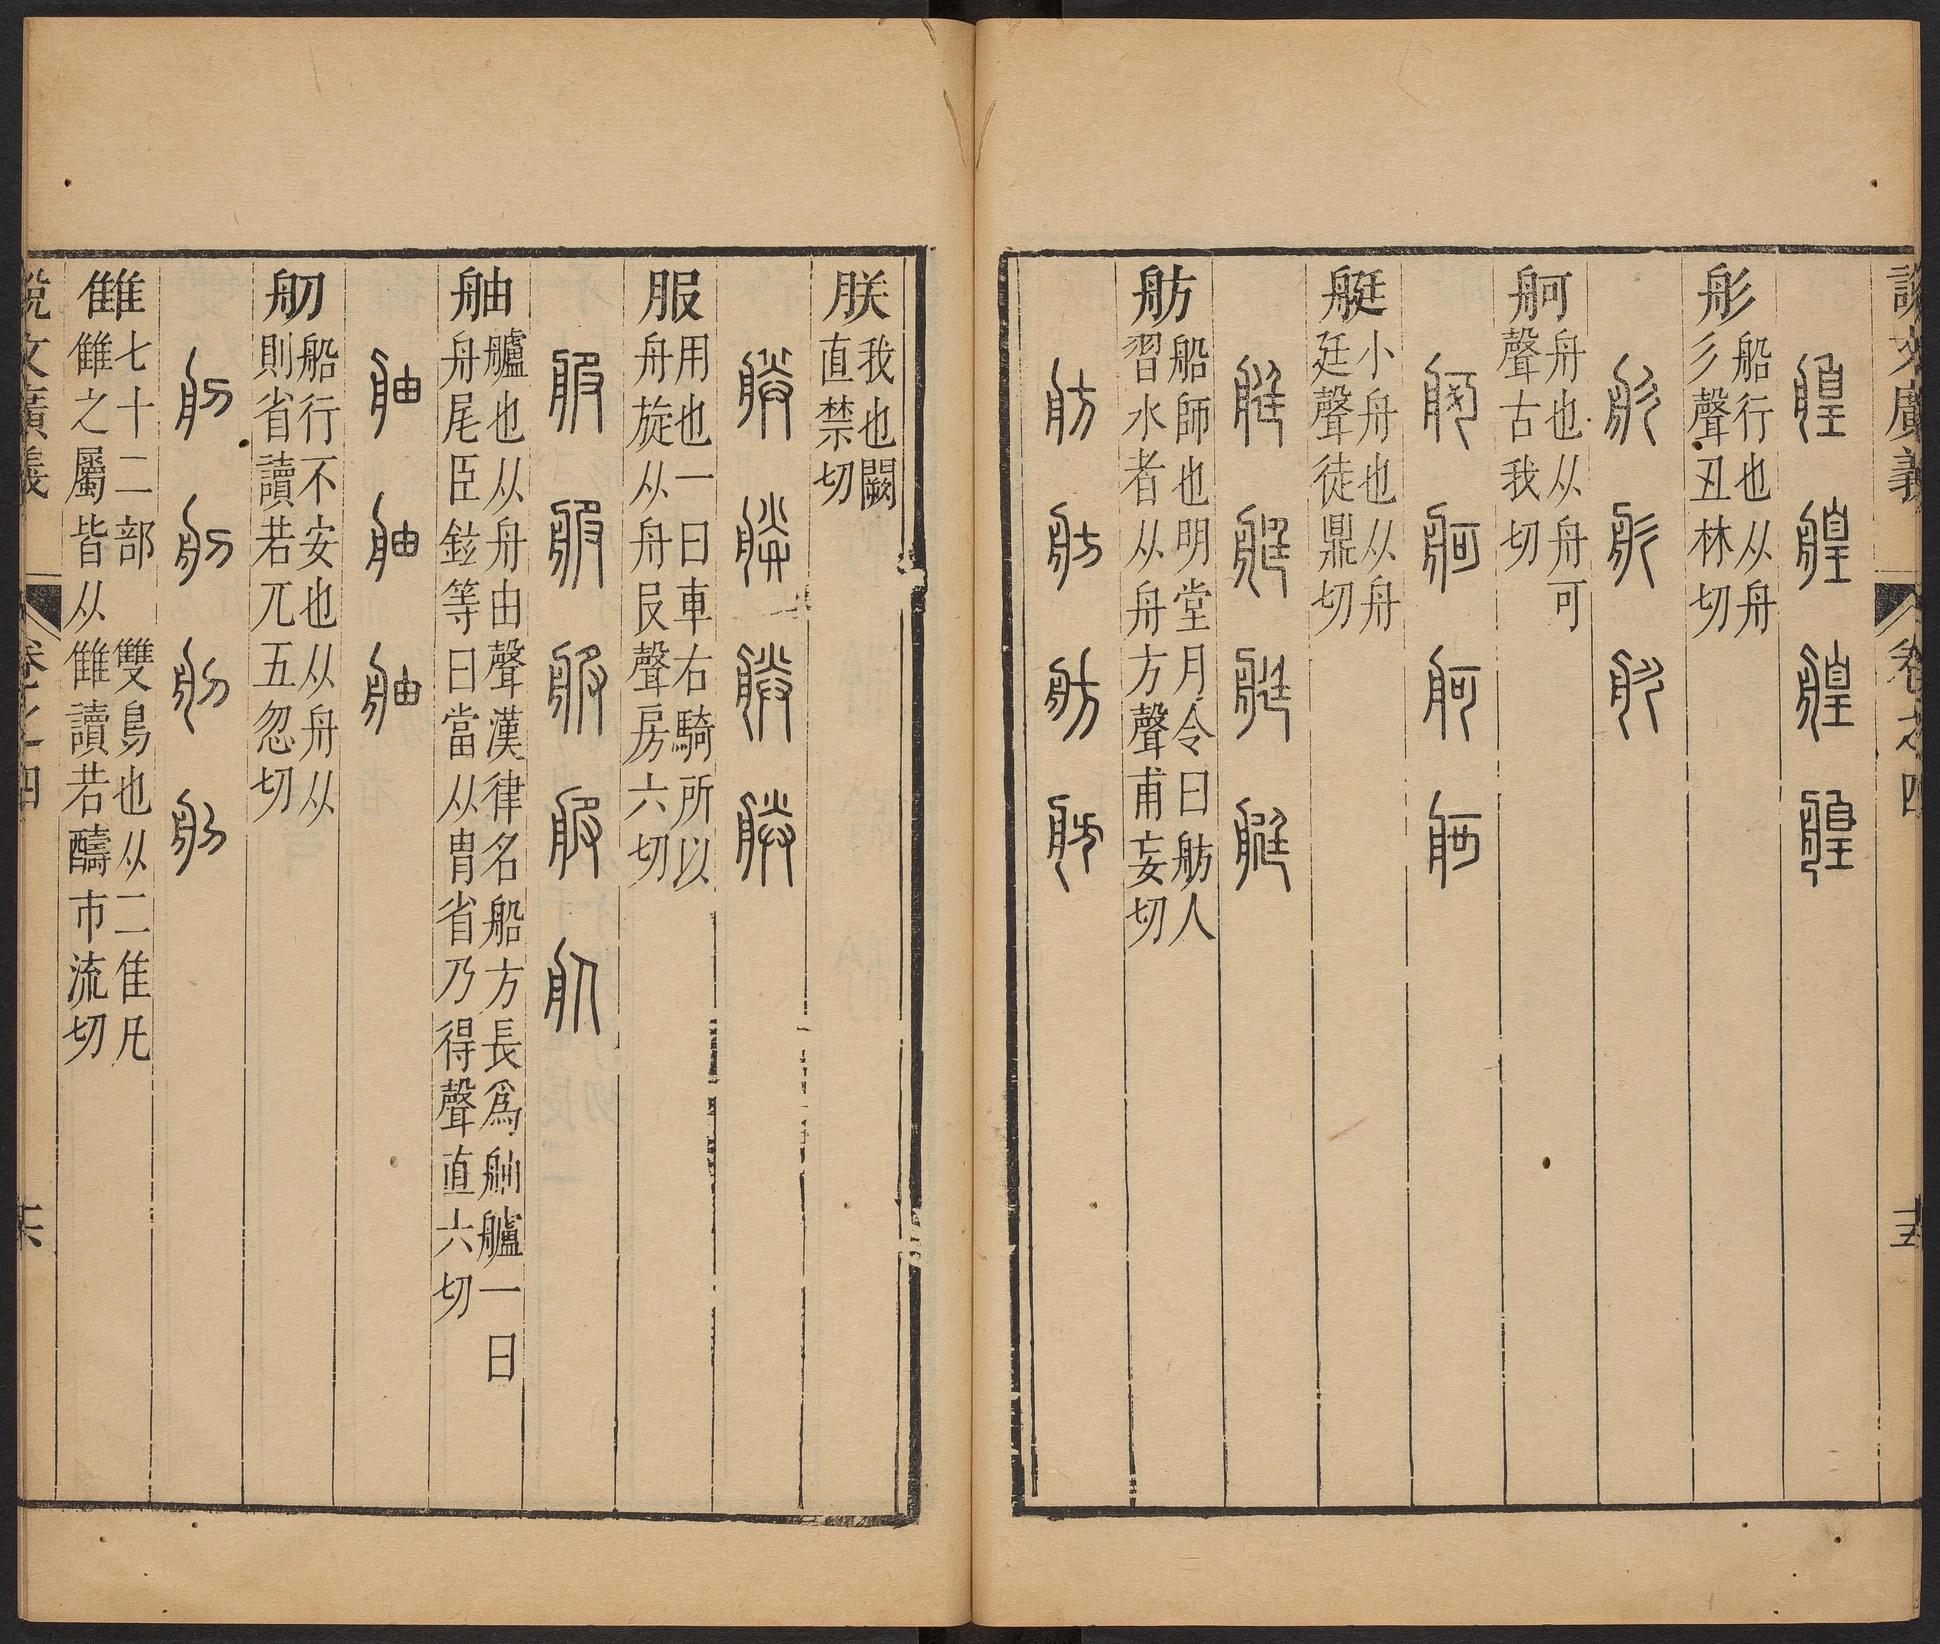 說文廣義 卷之四 十五
艎 艎 艎 艎
彤
船行也从舟
彡聲丑林切
彤 彤 彤
舸
舟也从舟可
聲古我切
舸 舸 舸 舸
艇
小舟也从舟
廷聲徒鼎切
艇 艇 艇 艇
舫
船師也明堂月令曰舫人
習水者从舟方聲甫妄切
舫 舫 舫 舫
朕
我也闕
直禁切
朕 朕 朕 朕
服
用也一曰車右騎所以
舟旋从舟𠬝聲房六切
服 服 服 服 服
舳
艫也从舟由聲漢律名船方長爲舳艫一曰
舟尾臣鉉等曰當从胄省乃得聲直六切
舳 舳 舳
舠
船行不安也从舟从
則省讀若兀五忽切
舠 舠 舠 舠
雔
七十二部 雙鳥也从二隹凡
雔之屬皆从雔讀若醻市流切
說文廣義 卷之四 十六